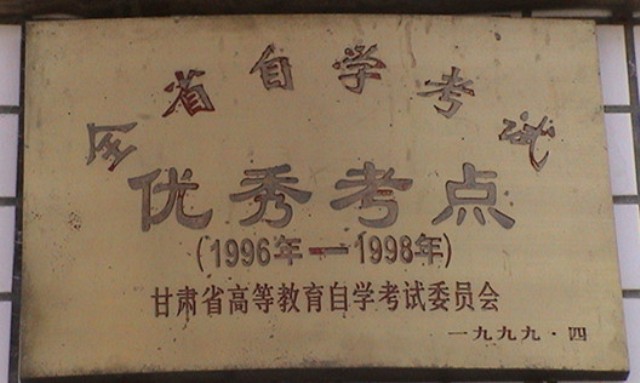 全省自学考试
优秀考点
(1996年—1998年)
甘肃省高等教育自学考试委员会
一九九九·四